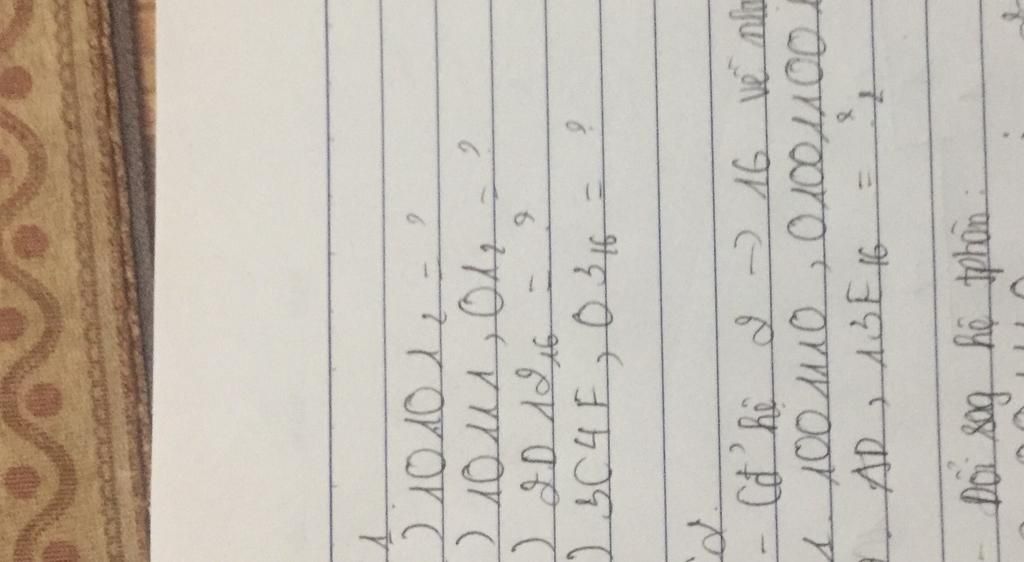 1
) 10101₂ = ?
) 10111,01₂ = ?
) 2D12₁₆ = ?
) 3C4F,03₁₆ = ?
- Cđ' hệ 2 -> 16 về
1. 1001110,01001100
AD,13E₁₆ = ?₂
- Đổi sog hệ tphân: